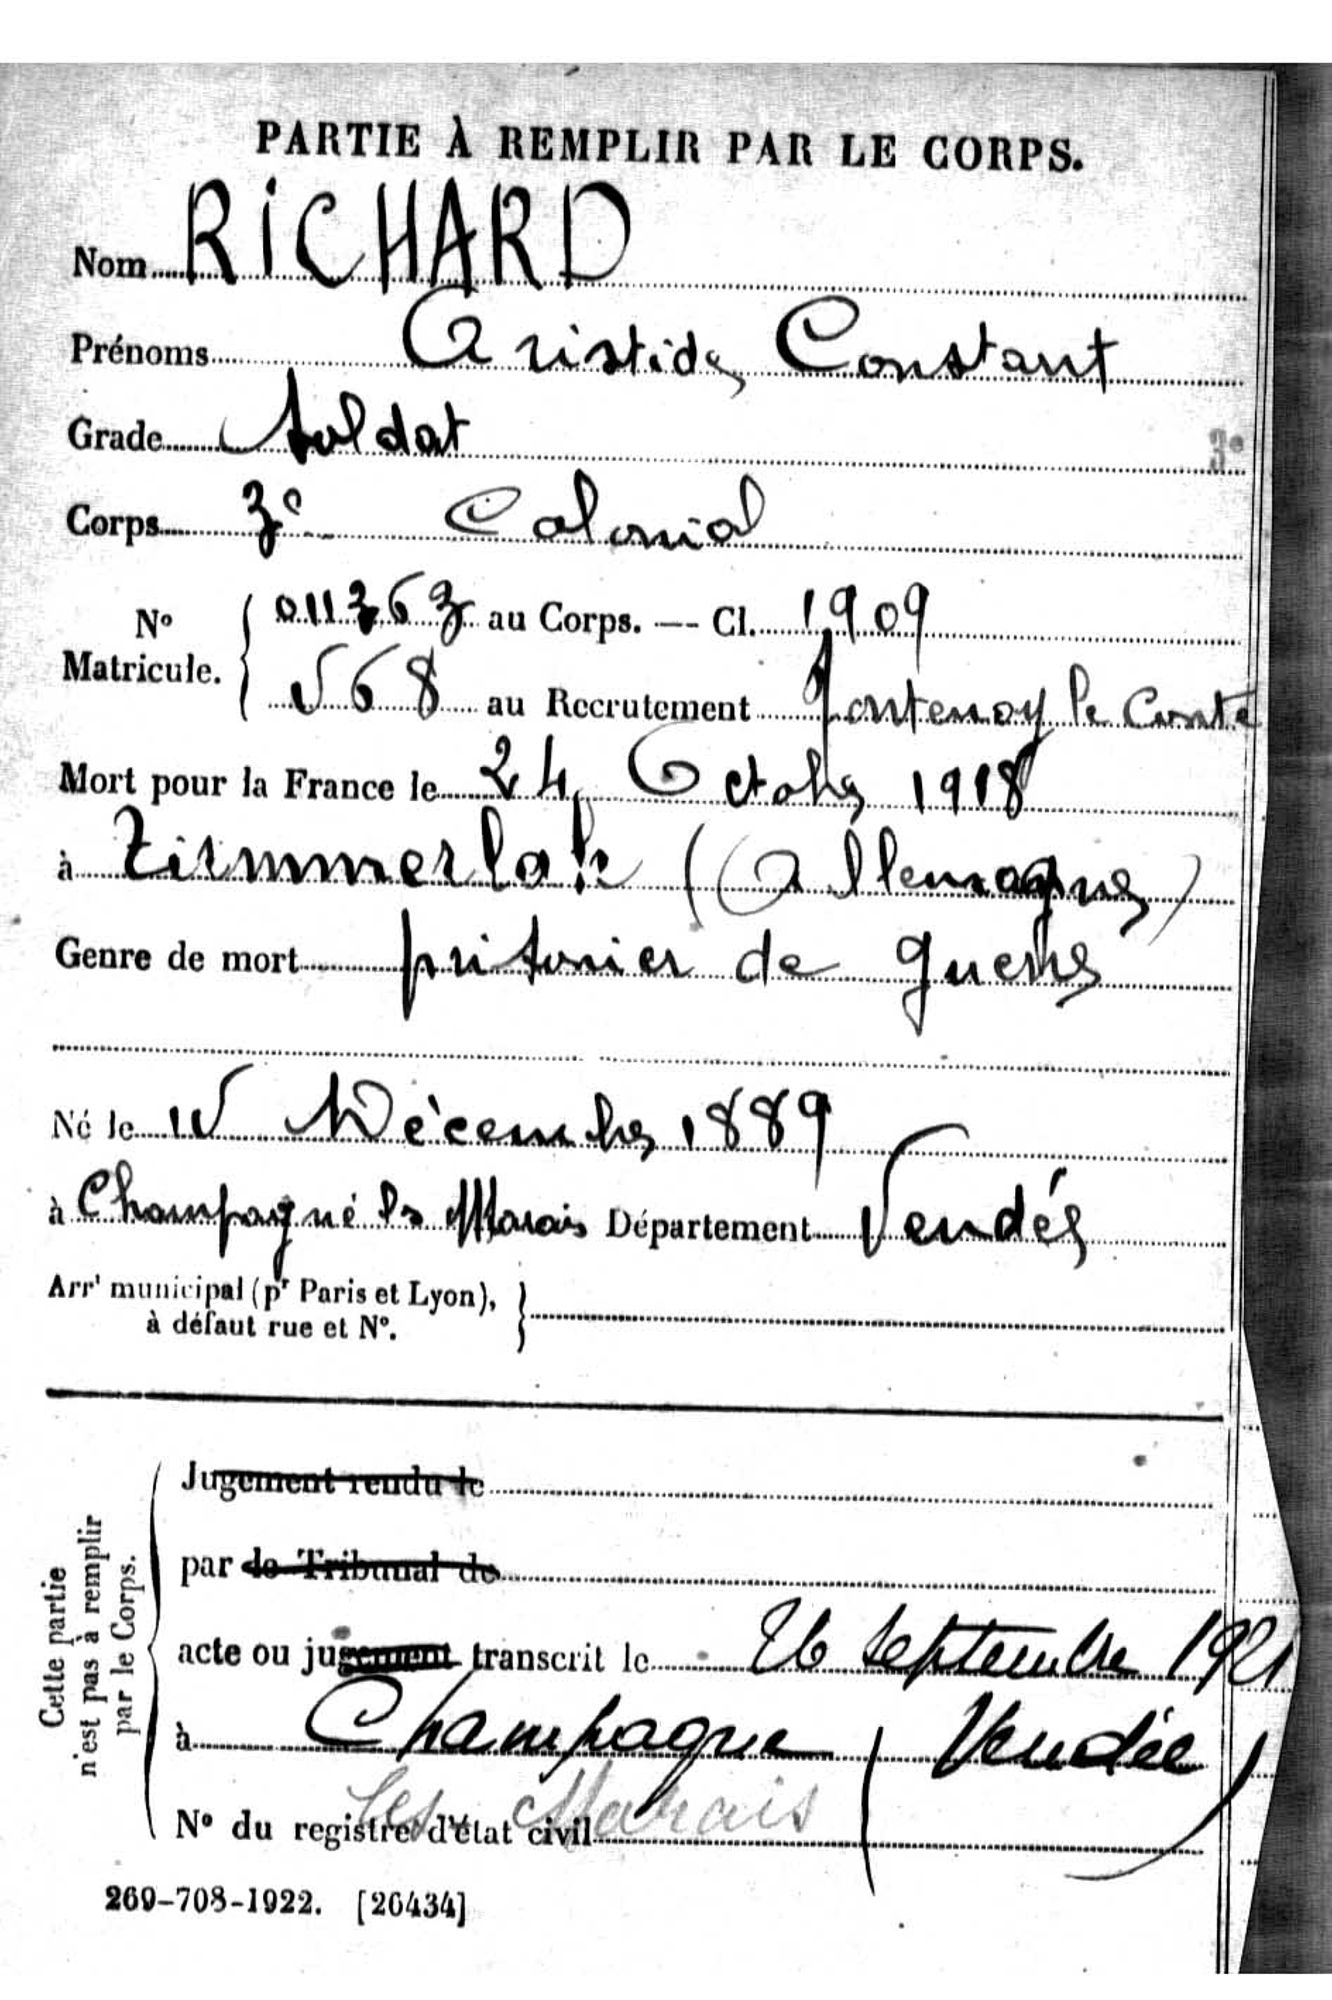 PARTIE À REMPLIR PAR LE CORPS.
Nom RICHARD
Prénoms Aristide Constant
Grade Soldat
3e
Corps 3e Colonial
No Matricule. { 011363 au Corps. — Cl. 1909
568 au Recrutement Fontenoy le Comte
Mort pour la France le 24 Octobre 1918
à Zimmerlohe (Allemagne)
Genre de mort prisonier de guerre
Né le 15 Décembre 1889
à Champagné les Marais Département Vendée
Arrt municipal (pr Paris et Lyon),
à défaut rue et No. }
Cette partie
n'est pas à remplir
par le Corps.
Jugement rendu le
par le Tribunal de
acte ou jugement transcrit le 26 Septembre 1921
à Champagne (Vendée)
les Marais
No du registre d'état civil
269-708-1922. [26434]